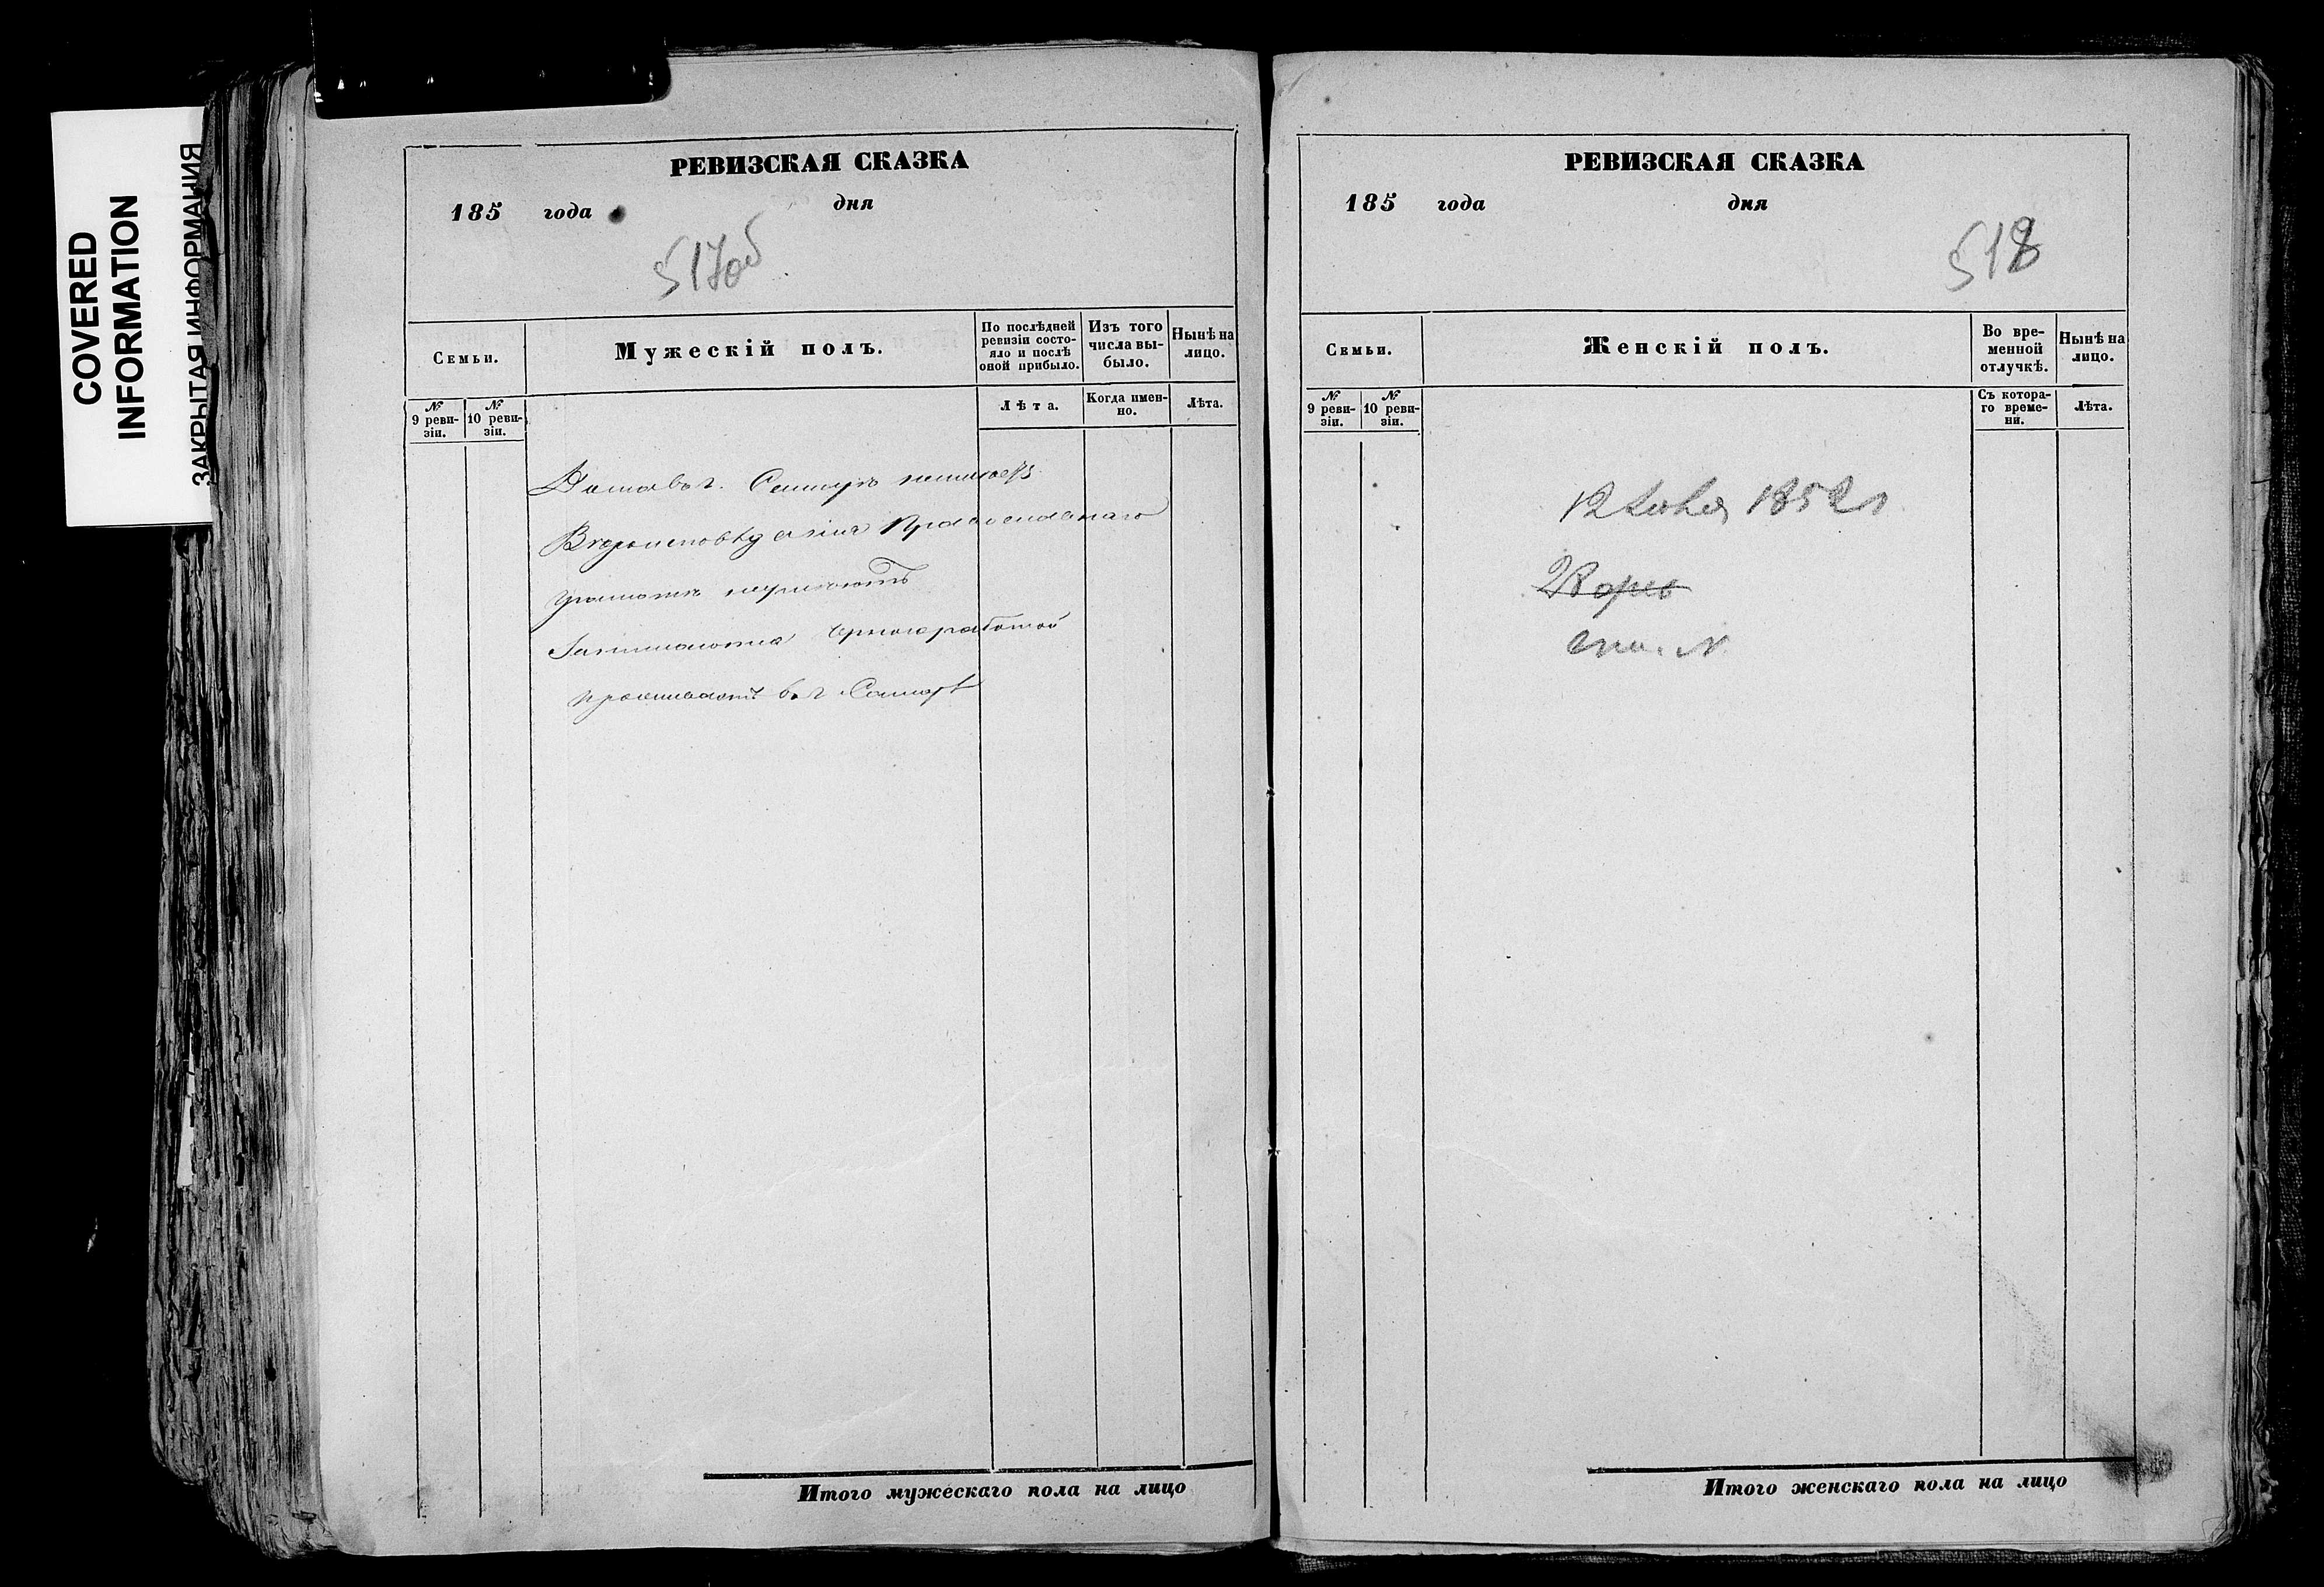 COVERED
INFORMATION
ЗАКРЫТАЯ ИНФОРМАЦИЯ
РЕВИЗСКАЯ СКАЗКА
185 года дня
517об
Семьи.
Мужескій полъ.
По послѣдней ревизіи состо-
яло и послѣ оной прибыло.
Изъ того числа вы-
было.
Нынѣ на лицо.
№ 9 реви-
зіи.
№ 10 реви-
зіи.
Лѣта.
Когда имен-
но.
Лѣта.
Самарѣ
Православнаго
грамотѣ
Занимается черной работой
проживаетъ в г. Самарѣ
Итого мужескаго пола на лицо
РЕВИЗСКАЯ СКАЗКА
185 года дня
518
Семьи.
Женскій полъ.
Во вре-
менной
отлучкѣ.
Нынѣ на
лицо.
№ 9 реви-
зіи.
№ 10 реви-
зіи.
Съ котора-
го време-
ни.
Лѣта.
12 1852 г
Итого женскаго пола на лицо